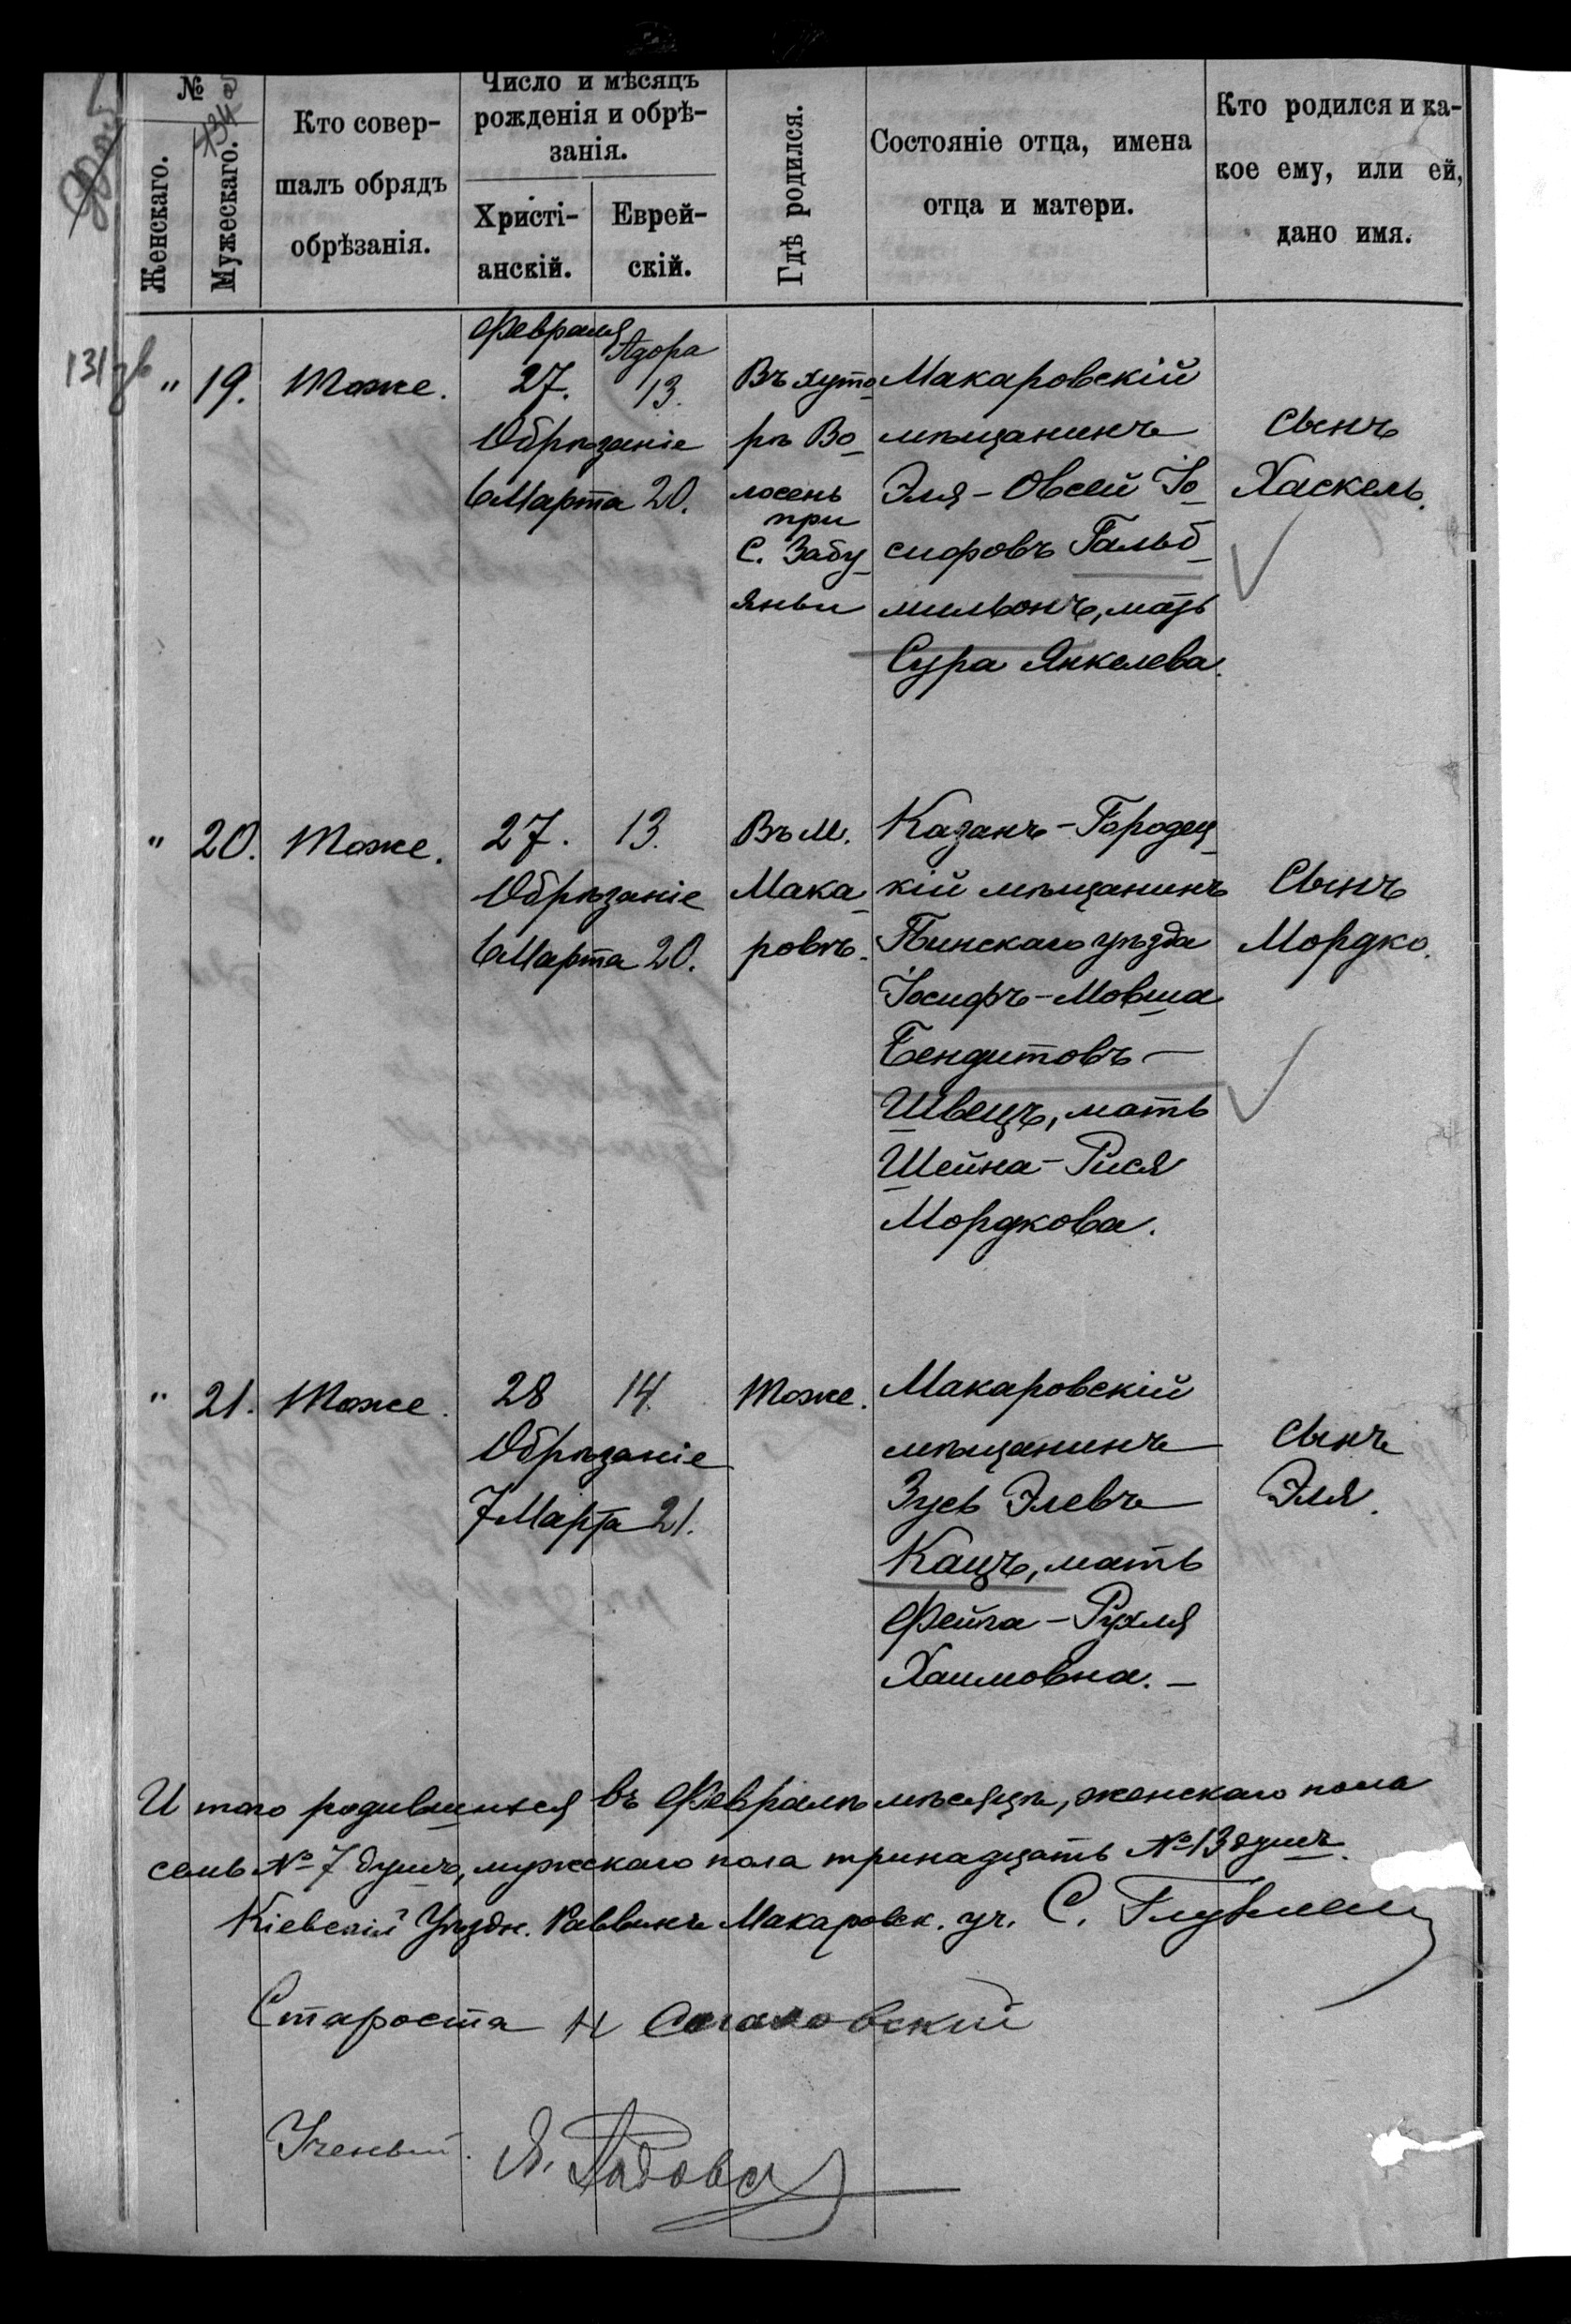 №
Женскаго.
Мужескаго.
Кто совер-
шалъ обрядъ
обрѣзанія.
Число и мѣсяцъ
рожденія и обрѣ-
занія.
Христі-
анскій.
Еврей-
скій.
Гдѣ родился.
Состояніе отца, имена
отца и матери.
Кто родился и ка-
кое ему, или ей,
дано имя.
131
" 19. Тоже.
Февраля
27.
Адора
13.
Обрѣзаніе
6 Марта 20.
Въ хуто-
рѣ Во-
лосень
при
С. Забу-
яньи
Макаровскій
мѣщанинъ
Эля-Овсей Іо-
сифовъ Гальб-
мильонъ, мать
Сура Янкелева.
Сынъ
Хаскель.
" 20. Тоже.
27. 13.
Обрѣзаніе
6 Марта 20.
Въ М.
Мака-
ровъ.
Казанъ-Городец-
кій мѣщанинъ
Пинскаго уѣзда
Іосифъ-Мовша
Бендитовъ-
Швецъ, мать
Шейна-Рися
Мордкова.
Сынъ
Мордко.
" 21. Тоже.
28 14.
Обрѣзаніе
7 Марта 21.
Тоже.
Макаровскій
мѣщанинъ
Зусь Элевъ
Кацъ, мать
Фейга-Рухля
Хаимовна.-
Сынъ
Эля.
И того родившихся въ Февралѣ мѣсяцѣ, женскаго пола
семь № 7 душъ, мужескаго пола тринадцать № 13 душъ.
Кіевскій Уѣздн. Раввинъ Макаровск. уч. С.
Староста Н
Ученый. Я.